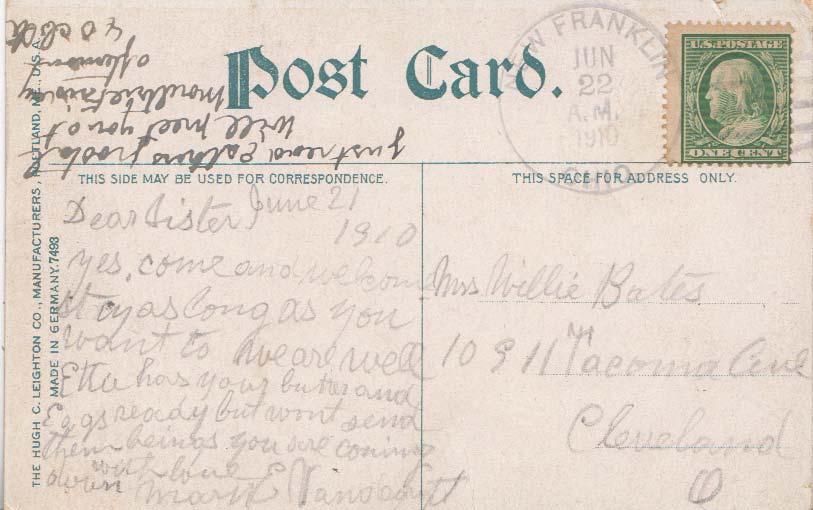 Post Card.
NEW FRANKLIN
JUN
22
A.M.
1910
OHIO
U.S. POSTAGE
ONE CENT
just read
Will meet you at
afternoon
4 o clk
THIS SIDE MAY BE USED FOR CORRESPONDENCE.
THIS SPACE FOR ADDRESS ONLY.
THE HUGH C. LEIGHTON CO., MANUFACTURERS, PORTLAND, ME., U.S.A.
MADE IN GERMANY. 7493
Dear Sister June 21
1910
yes, come and welcome
stay as long as you
want to we are well
Etta has your butter and
Eggs ready but wont send
them being as you are coming
down with love
Mary E
Mrs Willie Bates
10911 Tacoma Ave
Cleveland
O